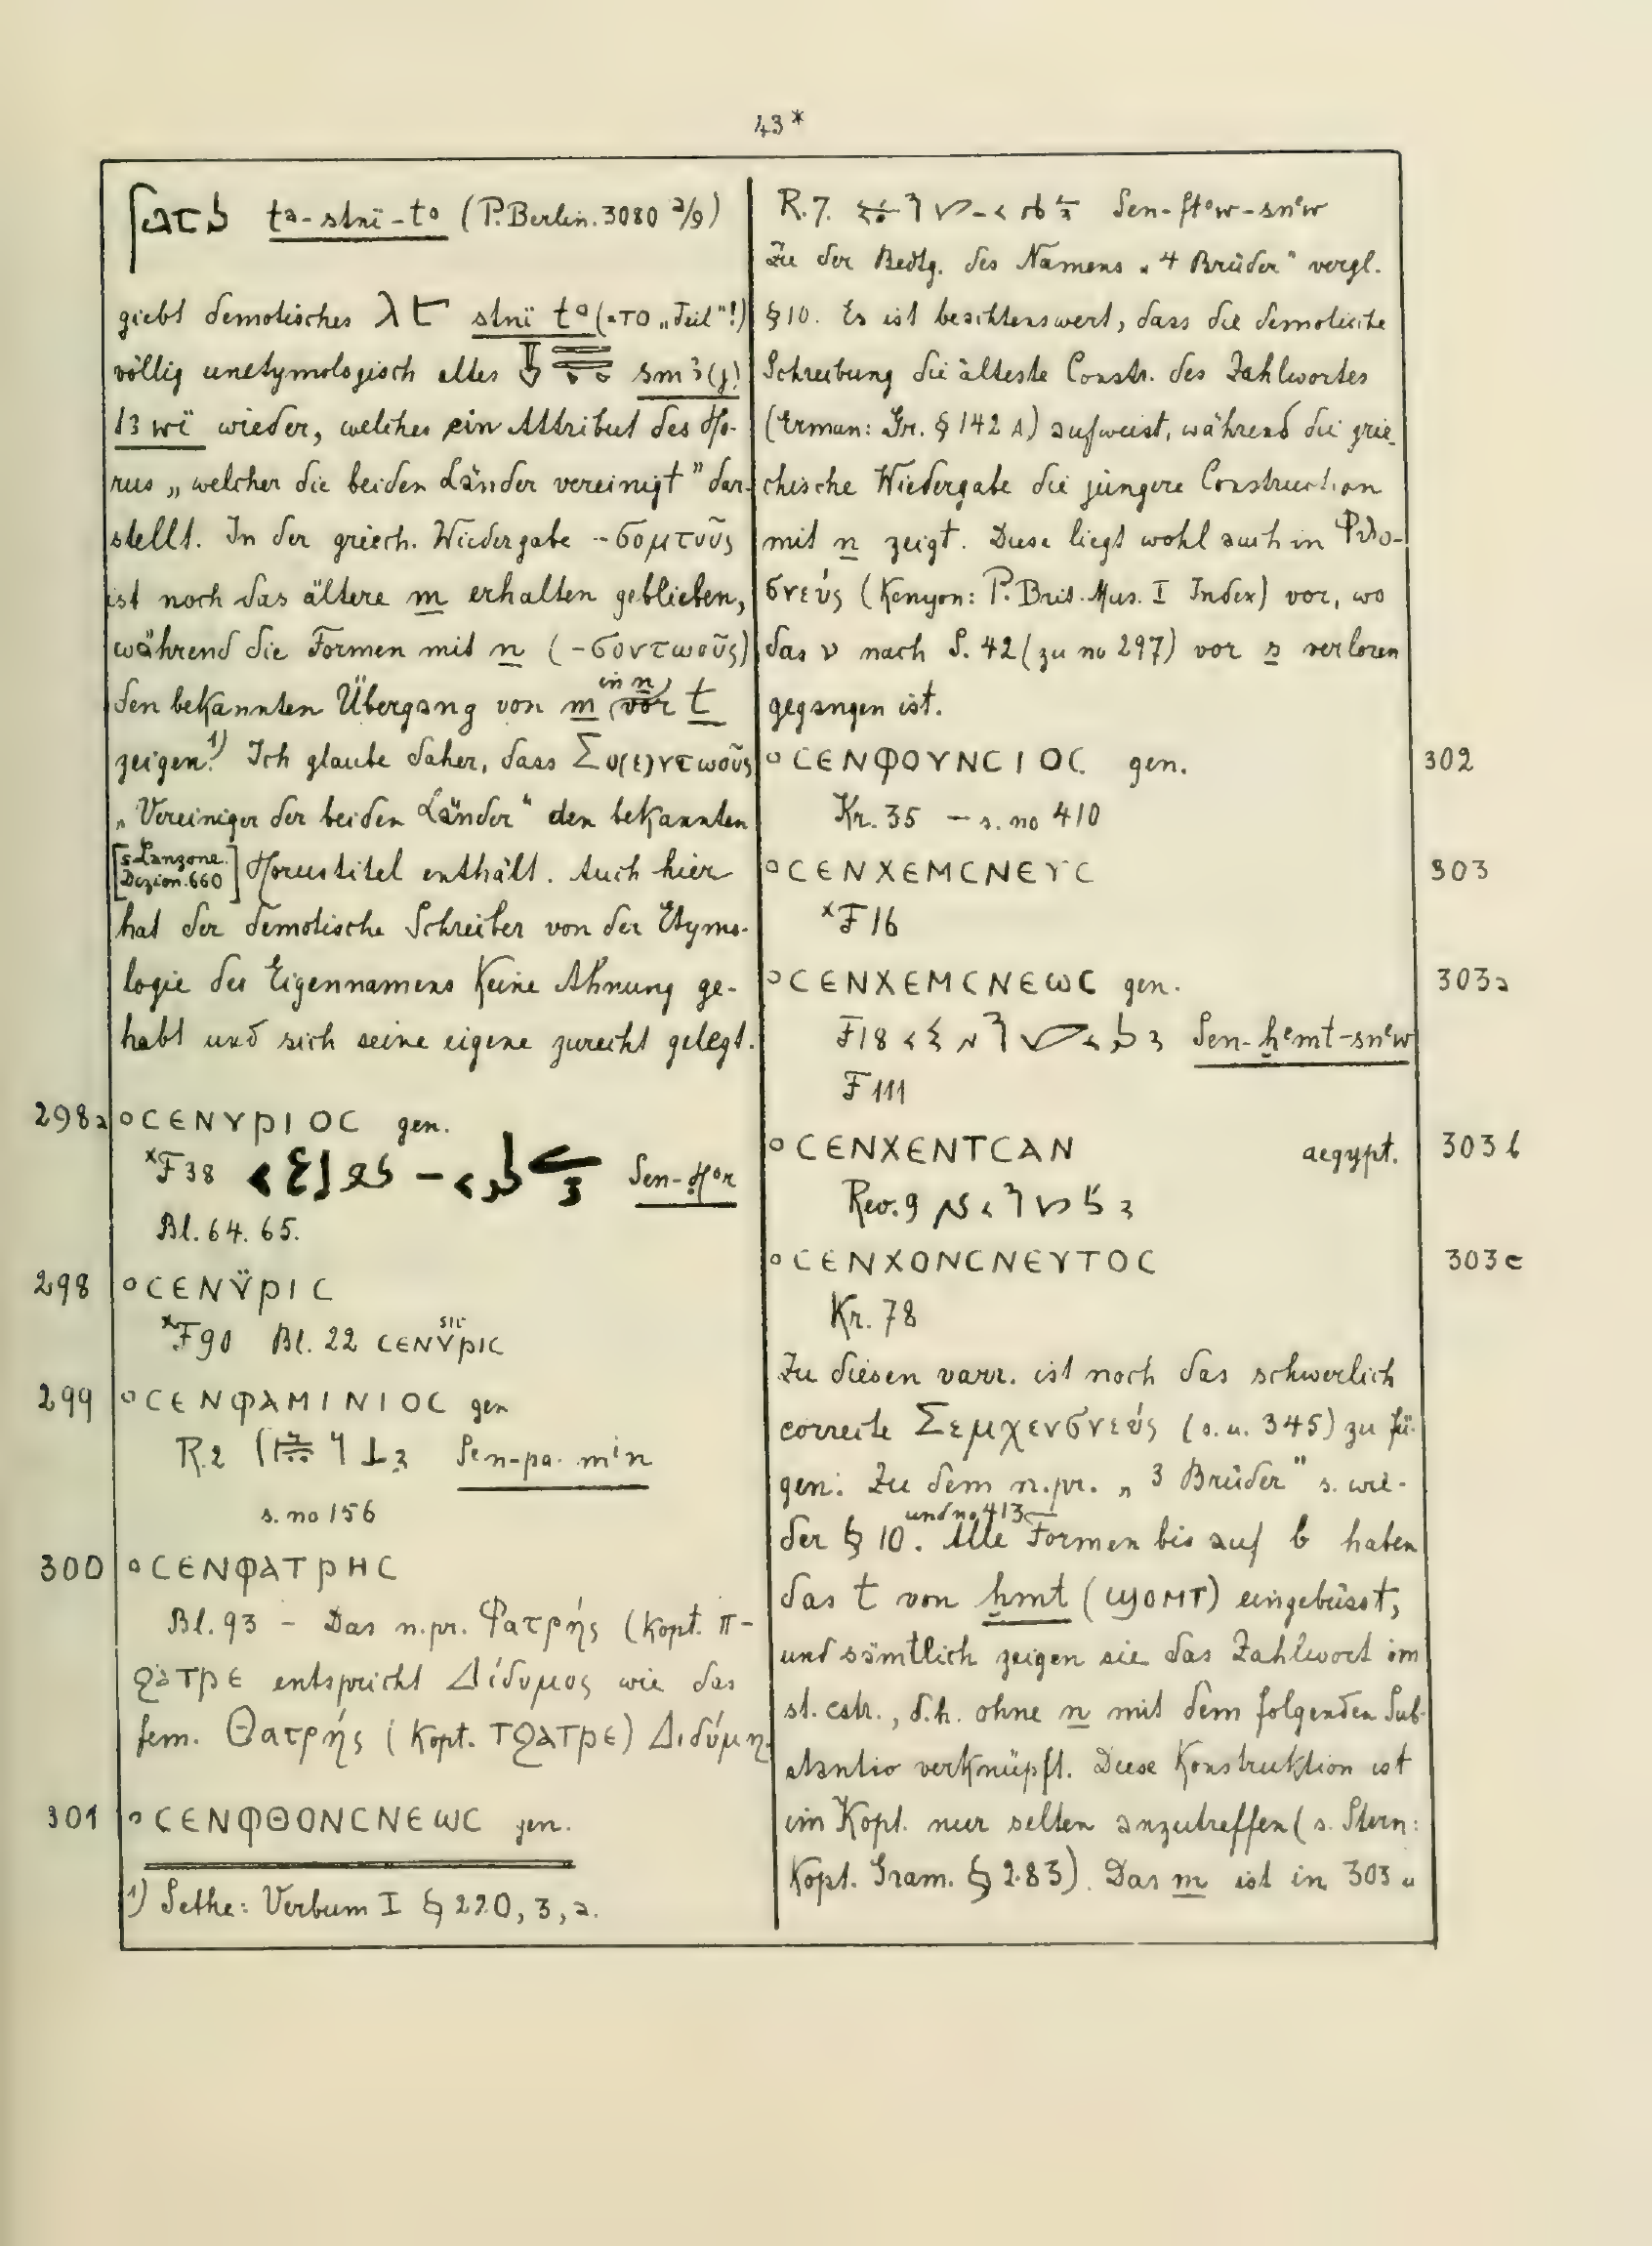 43*
ta-stni-to (P. Berlin. 3080 2/9)
giebt demotisches stnï to (=ⲦⲞ „Teil"!)
völlig unetymologisch altes sm3(j)
t3wï wieder, welches ein Attribut des Ho-
rus „welcher die beiden Länder vereinigt" dar-
stellt. In der griech. Wiedergabe -σομτοῦς
ist noch das ältere m erhalten geblieben,
während die Formen mit n (-σοντωοῦς)
den bekannten Übergang von m in n vor t
zeigen.¹) Ich glaube daher, dass Σο(ε)ντωοῦς
„Vereiniger der beiden Länder" den bekannten
[s. Lanzone Dizion. 660] Horustitel enthält. Auch hier
hat der demotische Schreiber von der Etymo-
logie des Eigennamens keine Ahnung ge-
habt und sich seine eigene zurecht gelegt.
298a ∘ⲤⲈⲚⲨⲢⲒⲞⲤ gen.
ˣF38 Sen-Ḥor
Bl. 64. 65.
298 ∘ⲤⲈⲚΫⲢⲒⲤ
ˣF90 Bl. 22 ⲤⲈⲚⲨⲢⲒⲤ sic
299 ∘ⲤⲈⲚⲪⲀⲘⲒⲚⲒⲞⲤ gen
R.2 Sen-pa-min
s. no 156
300 ∘ⲤⲈⲚⲪⲀⲦⲢⲎⲤ
Bl. 93 – Das n.pr. Φατρής (Kopt. π-
ϨⲀⲦⲢⲈ entspricht Δίδυμος wie das
fem. Θατρής (Kopt. ⲦϨⲀⲦⲢⲈ) Διδύμη.
301 ∘ⲤⲈⲚⲪⲐⲞⲚⲤⲚⲈⲰⲤ gen.
¹) Sethe: Verbum I § 220, 3, a.
R.7. Sen-ftow-snew
Zu der Bedtg. des Namens „4 Brüder" vergl.
§ 10. Es ist beachtenswert, dass die demotische
Schreibung die älteste Constr. des Zahlwortes
(Erman: Gr. § 142 A) aufweist, während die grie-
chische Wiedergabe die jüngere Construction
mit n zeigt. Diese liegt wohl auch in Φθο-
σνεύς (Kenyon: P. Brit. Mus. I Index) vor, wo
das ν nach S. 42 (zu no 297) vor s verloren
gegangen ist.
∘ⲤⲈⲚⲪⲞⲨⲚⲤⲒⲞⲤ gen. 302
Kr. 35 – s. no 410
∘ⲤⲈⲚⲬⲈⲘⲤⲚⲈⲨⲤ 303
ˣF16
∘ⲤⲈⲚⲬⲈⲘⲤⲚⲈⲰⲤ gen. 303a
F18 Sen-ḫemt-snew
F 111
∘ⲤⲈⲚⲬⲈⲚⲦⲤⲀⲚ aegypt. 303b
Rev. 9
∘ⲤⲈⲚⲬⲞⲚⲤⲚⲈⲨⲦⲞⲤ 303c
Kr. 78
Zu diesen varr. ist noch das schwerlich
correcte Σεμχενσνεύς (s. u. 345) zu fü-
gen. Zu dem n.pr. „3 Brüder" s. wie-
der § 10. und no 413 Alle Formen bis auf b haben
das t von ḫmt (ϢⲞⲘⲦ) eingebüsst,
und sämtlich zeigen sie das Zahlwort im
st. cstr., d.h. ohne n mit dem folgenden Sub-
stantiv verknüpft. Diese Konstruktion ist
im Kopt. nur selten anzutreffen (s. Stern:
Kopt. Gram. § 283). Das m ist in 303 u